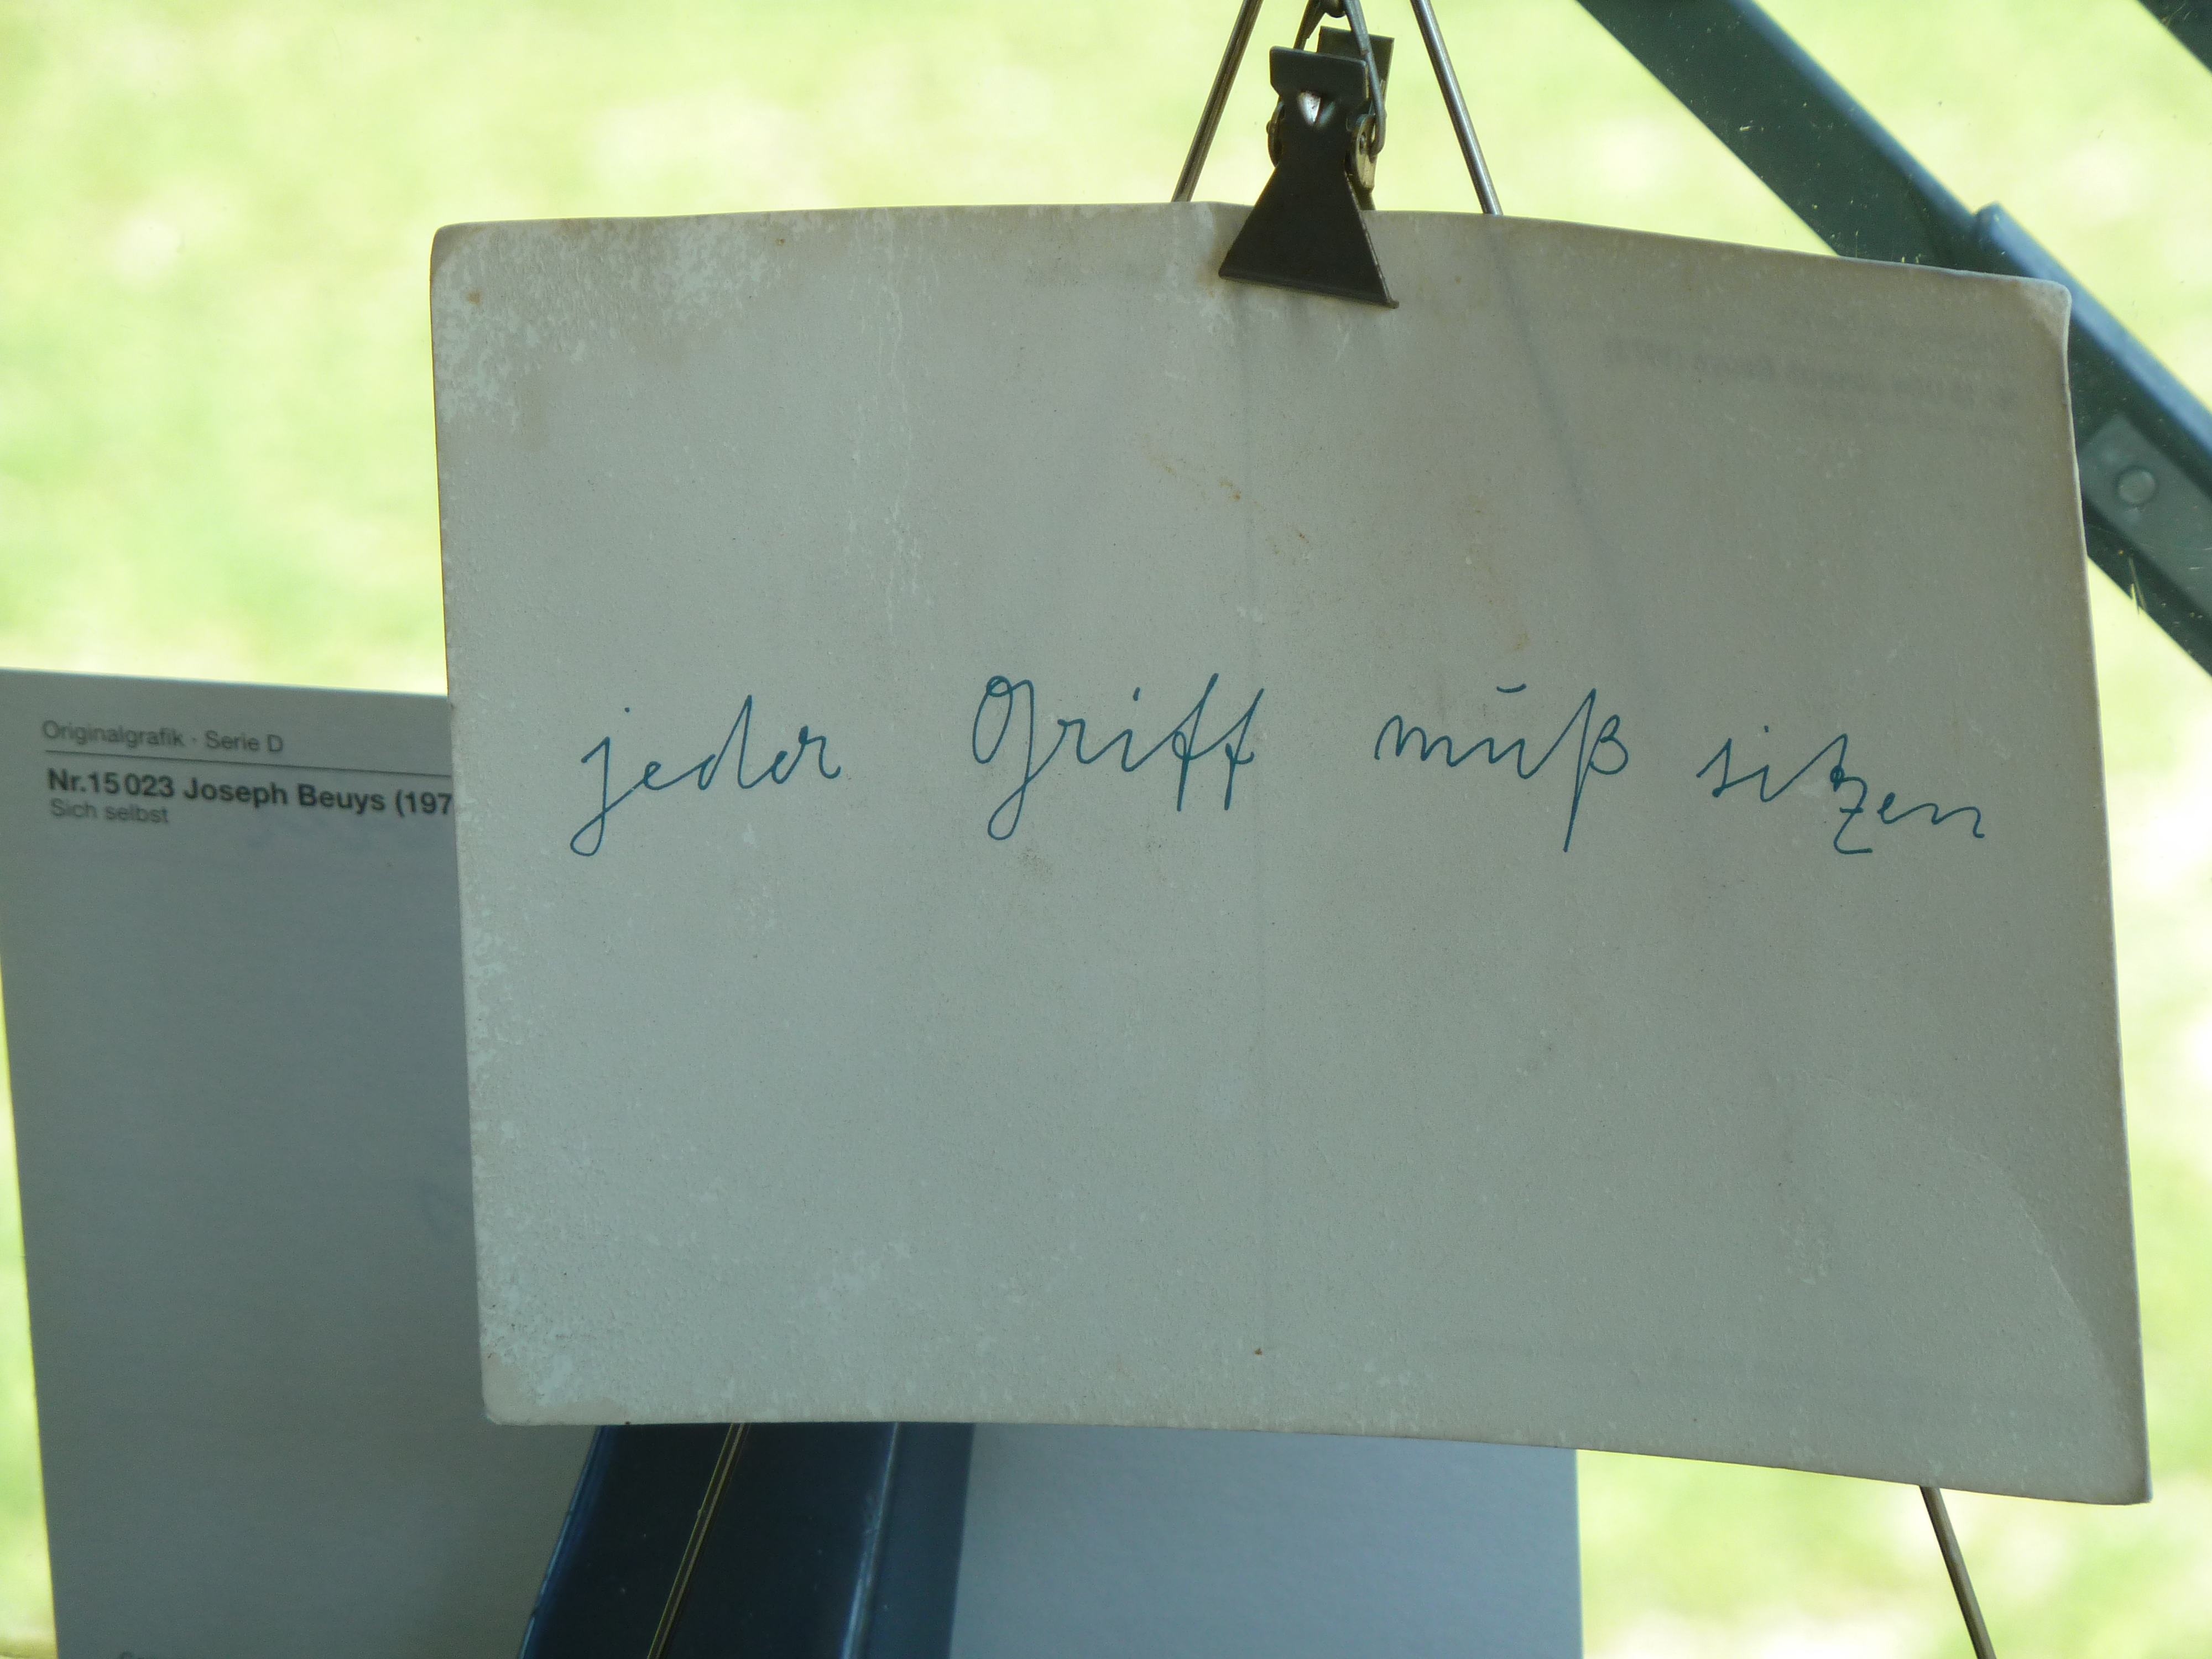 jeder Griff muß sitzen
Originalgrafik · Serie D
Nr. 15 023 Joseph Beuys (197
Sich selbst